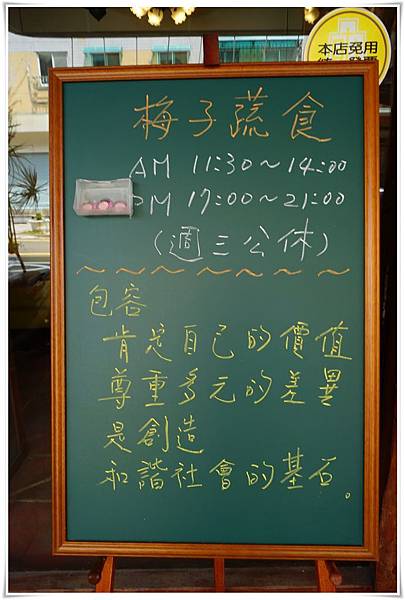 本店免用
統一發票
梅子蔬食
AM 11:30～14:00
PM 17:00～21:00
(週三公休)
～～～～～～～
包容
肯定自己的價值
尊重多元的差異
是創造
和諧社會的基石。